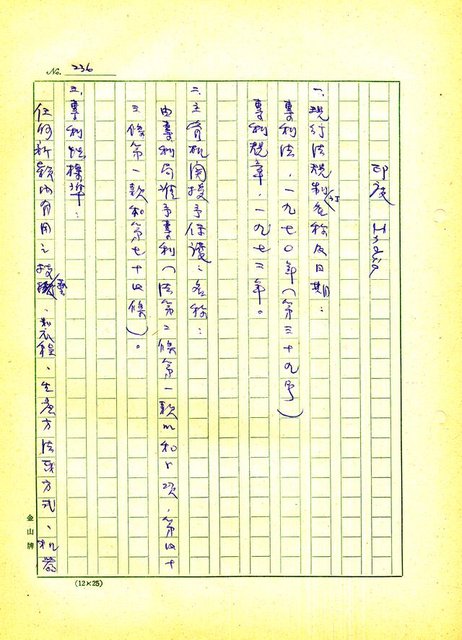 No. 236
印度 India
一、現行法規制訂名稱及日期：
專利法，一九七〇年（第三十九号）
專利規章，一九七二年。
二、主管机関授予保護之名称：
由專利局准予專利（法第二條第一款m和r項，第四十
三條第一款和第七十四條）。
三、專利性標準：
任何新穎的有用之技藝、製程、生產方法或方式、机器
金山牌
(12×25)